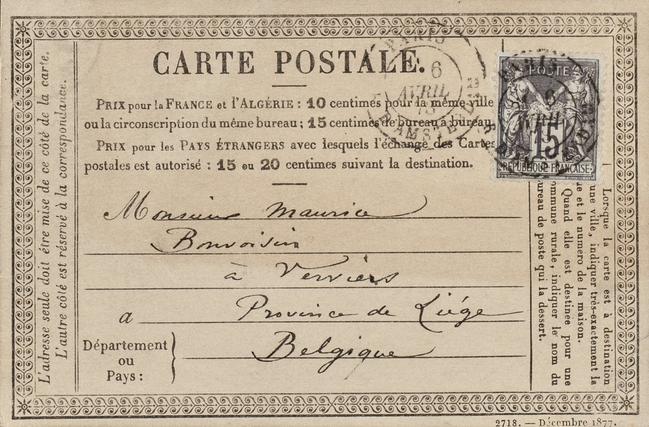 CARTE POSTALE.
PRIX pour la FRANCE et l'ALGÉRIE : 10 centimes pour la même ville
ou la circonscription du même bureau ; 15 centimes de bureau à bureau.
PRIX pour les PAYS ÉTRANGERS avec lesquels l'échange des Cartes
postales est autorisé : 15 ou 20 centimes suivant la destination.
Monsieur Maurice
Bonvoisin
à Verviers
a Province de Liége
Département
ou
Pays :
Belgique
L'adresse seule doit être mise de ce côté de la carte.
L'autre côté est réservé à la correspondance.
Lorsque la carte est à destination
une ville, indiquer très-exactement la
et le numéro de la maison.
Quand elle est destinée pour une
commune rurale, indiquer le nom du
bureau de poste qui la dessert.
PARIS
6
AVRIL
78
R. AMSTERDAM
POSTE
15
RÉPUBLIQUE FRANÇAISE
PARIS
6
AVRIL
2718. — Décembre 1877.